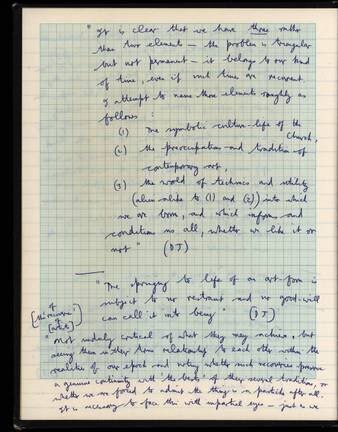 " It is clear that we have three rather
than two elements – the problem is triangular
but not permanent – it belongs to our kind
of time, even if such time are recurrent.
I attempt to name these elements roughly as
follows :
(1) The symbolic culture-life of the
Church,
(2) the preoccupation-and tradition-of
contemporary art,
(3) the world of technics and utility
(alien alike to (1) and (2)) into which
we are born, and which informs and
conditions us all, whether we like it or
not " (DJ)
" The springing to life of an art-form is
subject to no restraint and no good-will
can call it into being " (DJ)
of
of
" not unduly critical of what they may achieve, but
seeing them in their true relationship to each other within the
realities of our epoch and noting whether such recoveries preserve
a genuine continuity with 'the bests' of their several traditions, or
whether we are forced to admit the thing is a pastiche after all.
It is necessary to face this with impartial eyes – just as we